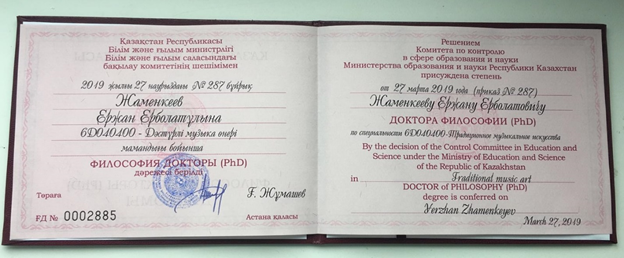 Қазақстан Республикасы
Білім және ғылым министрлігі
Білім және ғылым саласындағы
бақылау комитетінің шешімімен
2019 жылғы 27 наурыздағы № 287 бұйрық
Жаменкеев
Ержан Ерболатұлына
6D040400 - Дәстүрлі музыка өнері
мамандығы бойынша
ФИЛОСОФИЯ ДОКТОРЫ (PhD)
дәрежесі берілді
Төраға
Ғ. Жұмашев
ҒД № 0002885
Астана қаласы
Решением
Комитета по контролю
в сфере образования и науки
Министерства образования и науки Республики Казахстан
присуждена степень
от 27 марта 2019 года (приказ № 287)
Жаменкееву Ержану Ерболатовичу
ДОКТОРА ФИЛОСОФИИ (PhD)
по специальности 6D040400-Традиционное музыкальное искусство
By the decision of the Control Committee in Education and
Science under the Ministry of Education and Science
of the Republic of Kazakhstan
in Traditional music art
DOCTOR OF PHILOSOPHY (PhD)
degree is conferred on
Yerzhan Zhamenkeyev
March 27, 2019